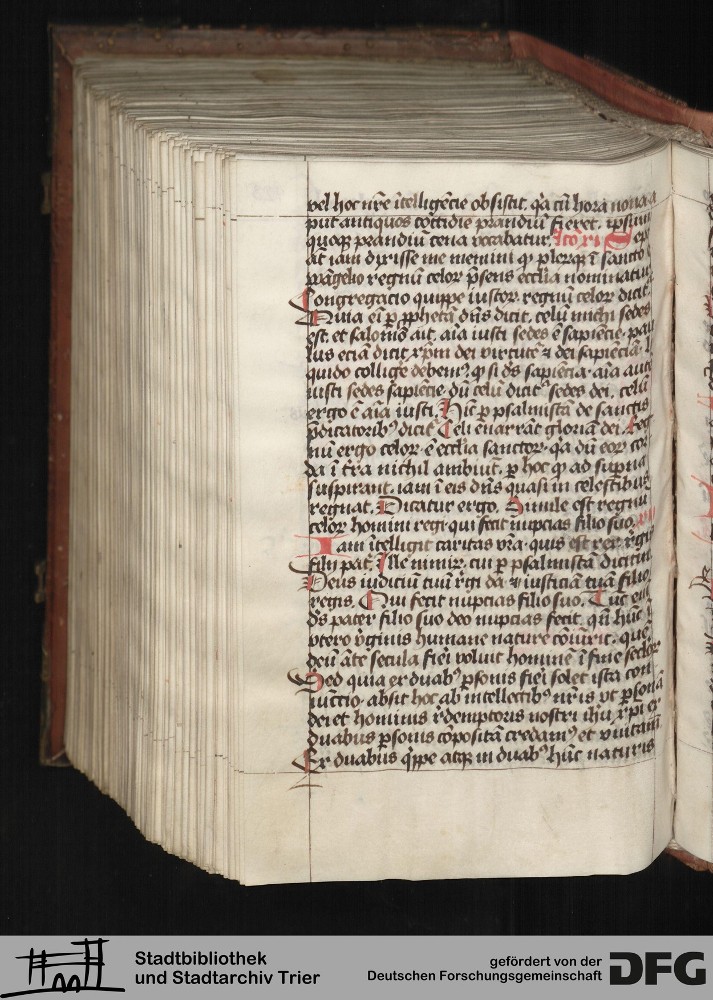 vel hoc nr̄e ītelligēcie obsistit. q̄a cū hora nona a
put antiquos cottidie prandiū fieret. ipsum
quoqꝫ prandiū cena vocabatur.
at iam dixisse me memini qꝫ plerūqꝫ ī sancto e
wāgelio regnū celoꝝ p̄sens ecclīa nominatur
Congregacio quippe iustoꝝ regnū celoꝝ dicit̄.
Quia eī ꝑ ꝓphetā dn̄s dicit. celū michi sedes
est. et salomō ait. aīa iusti sedes ē sapiēcie. pau
lus eciā dicit xp̄m dei virtutē ⁊ dei sapiēciā. l
quido collige debemꝰ. qꝫ si ds̄ sapiēcia. aīa autē
iusti sedes sapiēcie. dū celū dicitᷣ sedes dei. celū
ergo ē aīa iusti. Hīc ꝑ psalmistā de sanctis
p̄dicatoribꝰ dicitᷣ Celi enarrāt gloriam dei. Reg
nū ergo celoꝝ. ē ecclīa sanctoꝝ. q̄a dū eoꝝ cor
da ī t̄ra nichil ambiūt. ꝑ hoc qꝫ ad sup̄na
suspirant. iam ī eis dn̄s quasi in celestibus
regnat. Dicatur ergo. Simile est regnū
celoꝝ homini regi. qui fecit nupcias filio suo.
Iam ītelligit caritas vr̄a. quis est rex. r̄gis
filij pat̄. Ille nimiꝝ. cui ꝑ psalmistā dicitur.
Deus iudiciū tuū r̄gi da. ⁊ iusticiā tuā filio
regis. Qui fecit nupcias filio suo. Tūc eī
ds̄ pater filio suo deo nupcias fecit. qn̄ hūc ī
vtero v̄ginis humane nature cōiūxit. quē
deū āte secula fieri voluit hominē ī fine secloꝝ
Sed quia ex duabꝰ ꝑsonis fieri solet ista con
iūctio. absit hoc ab intellectibꝰ nr̄is vt ꝑsonā
dei et hominis r̄demptoris nostri ih̄u xp̄i ex
duabus ꝑsonis cōpositā credamꝰ et vnitam
Ex duabus q̄ppe atqꝫ in duabꝰ hūc naturis
Stadtbibliothek
und Stadtarchiv Trier
gefördert von der
Deutschen Forschungsgemeinschaft
DFG